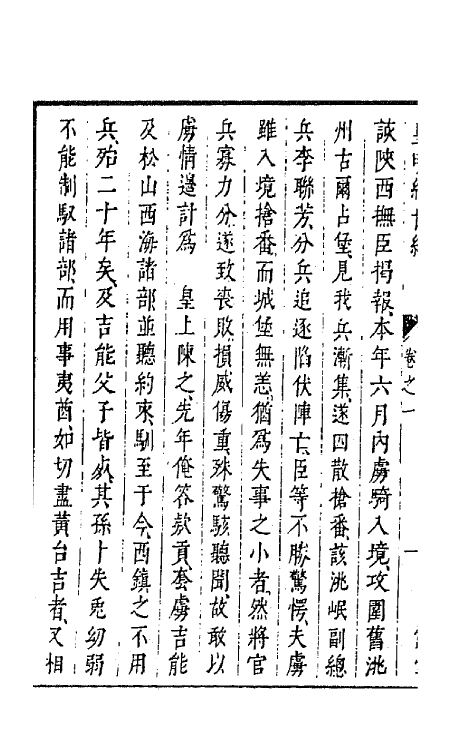 卷之一
該陝西撫臣揭報本年六月內虜騎入境攻圍舊洮
州古爾占堡見我兵漸集遂四散搶番該洮岷副總
兵李聯芳分兵追逐陷伏陣亡臣等不勝驚愕夫虜
雖入境搶番而城堡無恙猶爲失事之小者然將官
兵寡力分遂致喪敗損威傷重殊驚駭聽聞故敢以
虜情邊計爲　皇上陳之先年俺答款貢套虜吉能
及松山西海諸部並聽約束馴至于今西鎮之不用
兵殆二十年矣及吉能父子皆故其孫卜失兎幼弱
不能制馭諸部而用事夷酋如切盡黃台吉者又相